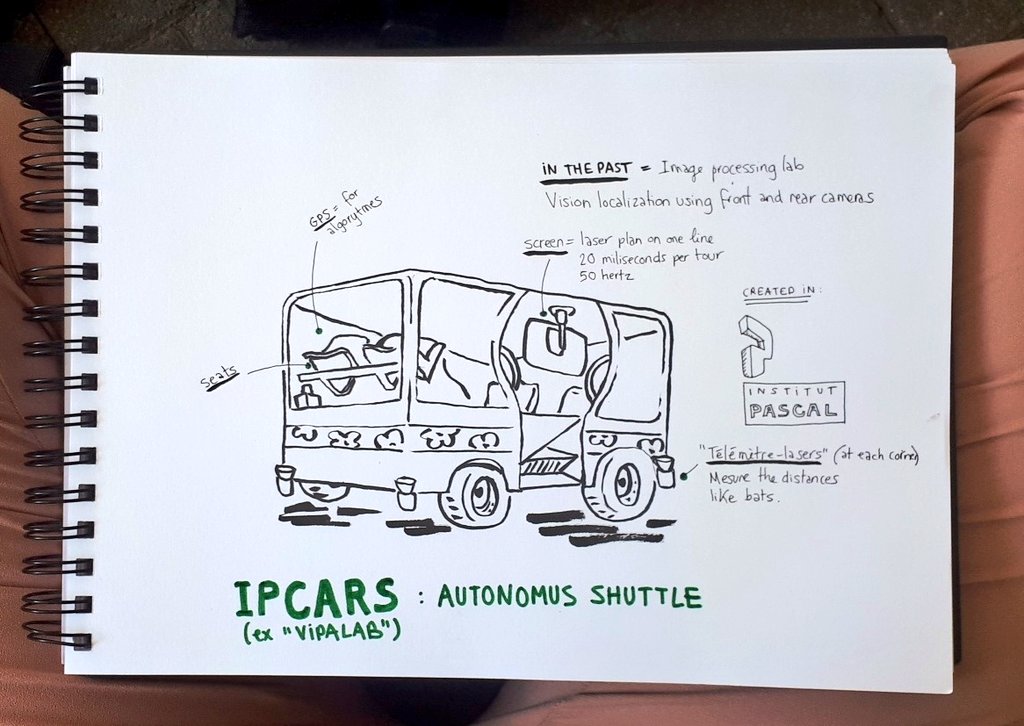 IN THE PAST = Image processing lab
Vision localization using front and rear cameras
GPS = for
algorytmes
screen = laser plan on one line
20 miliseconds per tour
50 hertz
CREATED IN :
seats
INSTITUT
PASCAL
"Télémètre-lasers" (at each corner)
Mesure the distances
like bats.
IPCARS : AUTONOMUS SHUTTLE
(ex "ViPALAB")